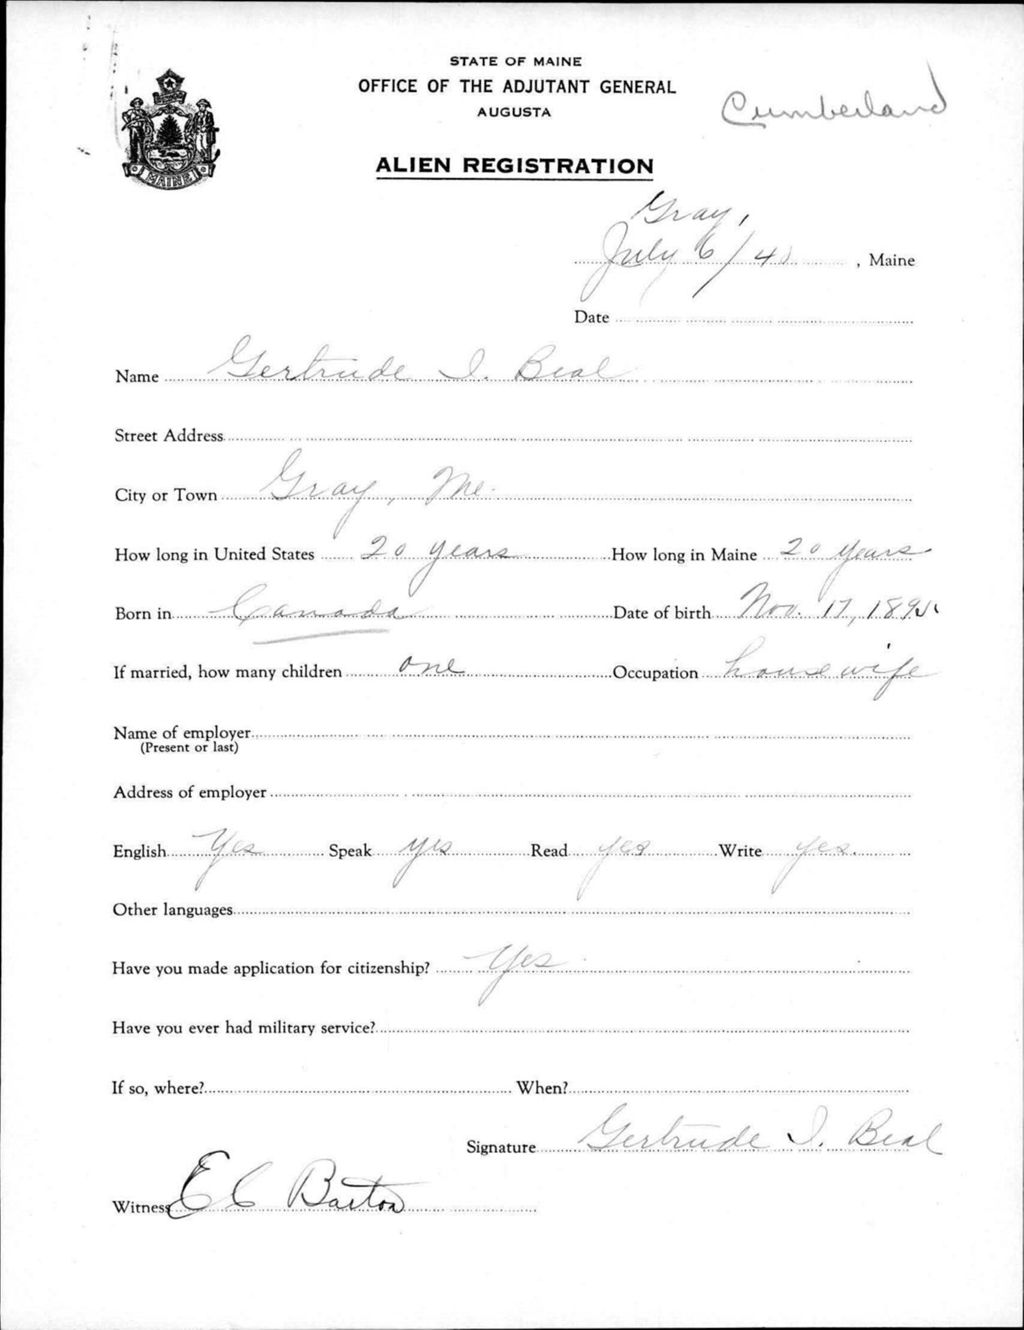 STATE OF MAINE
OFFICE OF THE ADJUTANT GENERAL
AUGUSTA
Cumberland
MAINE
ALIEN REGISTRATION
Gray,
July 6/40, Maine
Date
Name Gertrude I. Beal
Street Address
City or Town Gray, Me.
How long in United States 20 years How long in Maine 20 years
Born in Canada Date of birth Nov. 17,
If married, how many children one Occupation housewife
Name of employer
(Present or last)
Address of employer
English Yes Speak yes Read yes Write yes.
Other languages
Have you made application for citizenship? Yes
Have you ever had military service?
If so, where? When?
Signature Gertrude I. Beal
Witness E C Barton